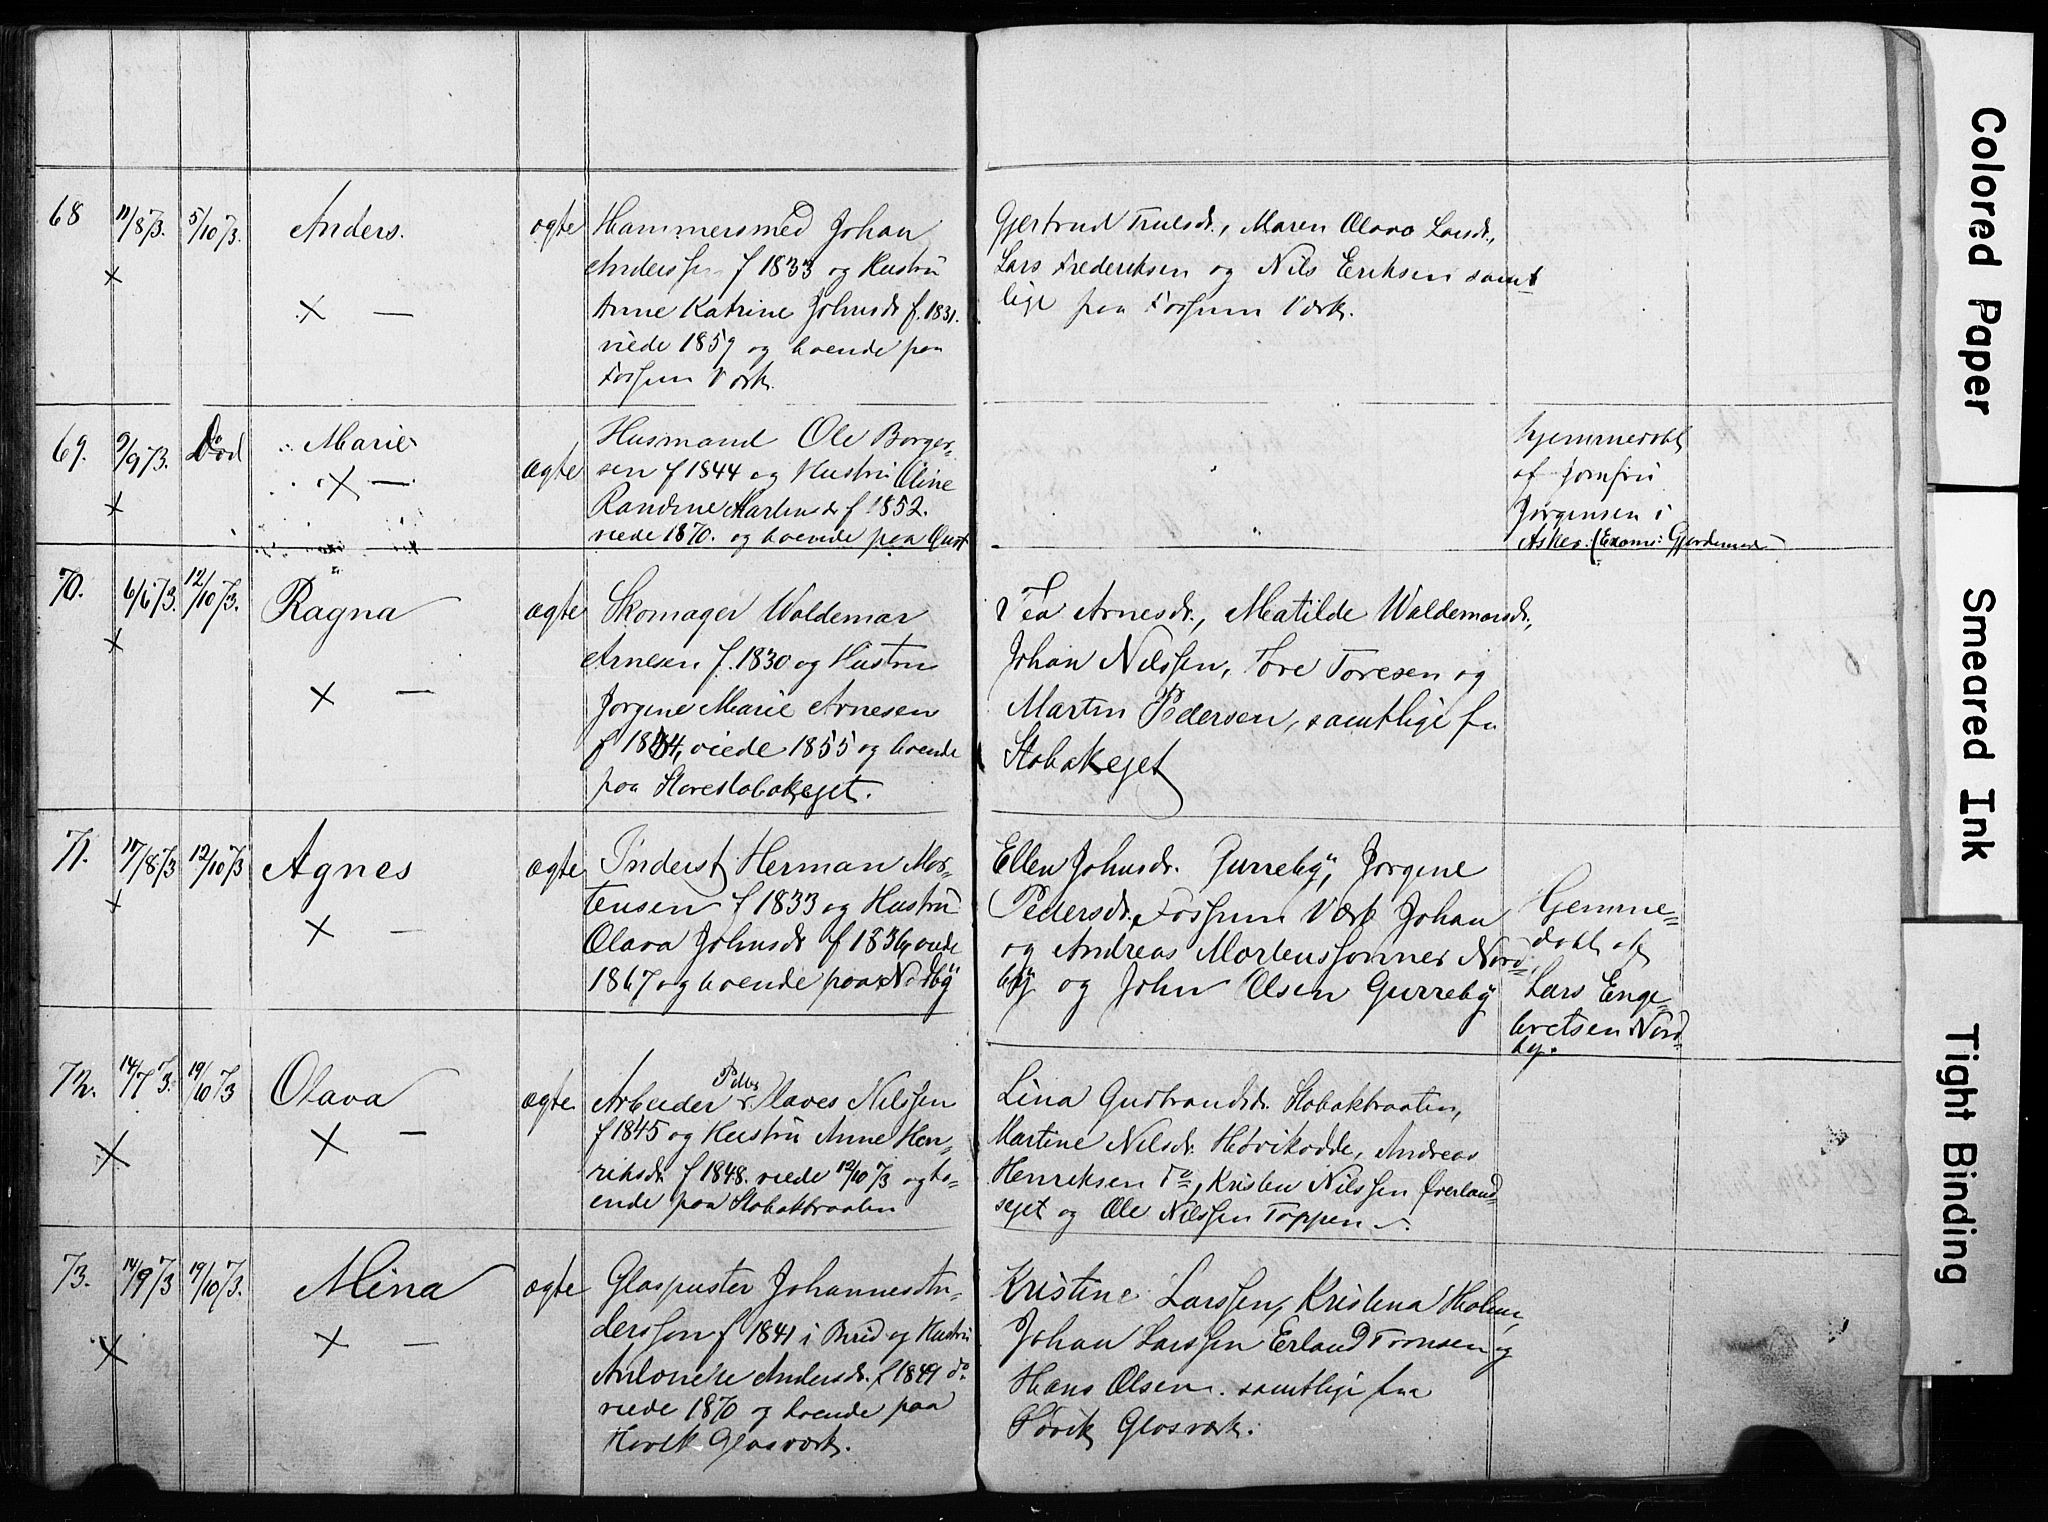 68
11/8 73.
5/10 73.
Anders.
ægte
Hammersmed Johan
Anderssen f 1833 og Hustru
Anne Katrine Johnsdr f. 1831.
viede 1859 og boende paa
Fossum Værk.
Gjertrud Trulsdr., Maren Olava Larsdr.,
Lars Frederiksen og Nils Eriksen samt
lige paa Fossum Værk.
× —
×
69.
9/9 73.
Død
Marie
× —
×
ægte
Husmand Ole Borger-
sen f 1844 og Hustru Oline
Randine Martinsdr f 1852.
viede 1870. og boende paa
hjemmedøbt
af Jomfru
Jørgensen i
Asker. (Exam: Gjordemod
70.
6/6 73.
12/10 73.
Ragna
× —
×
ægte
Skomager Waldemar
Arnesen f. 1830 og Hustru
Jørgine Marie Arnesen
f 1834, viede 1855 og boende
paa Storestabækeget.
Tea Arnesdr., Matilde Waldemarsdr.,
Johan Nilssen, Tore Toresen og
Martin Pedersen, samtlige fra
Stabækeget
71.
17/8 73
12/10 73
Agnes
× —
×
ægte
Inderst Herman Mor-
tensen f 1833 og Hustru
Olava Johnsdr f 1836, viede
1867 og boende paa Nordby
Ellen Johnsdr. Gurreby, Jørgine
Pedersdr. Fossum Værk Johan
og Andreas Mortenssønner Nord-
by og John Olsen Gurreby
Hjemme-
døbt af
Lars Enge-
bretsen Nord-
by.
72.
14/7 73.
19/10 73
Olava
× —
×
ægte
Peder
Arbeider Claves Nilssen
f 1845 og Hustru Anne Hen-
riksdr f 1848. viede 12/10 73 og bo-
ende paa Stabækbraaten
Lina Gudbrandsdr. Stabækbraaten,
Martine Nilsdr. Høvikodde, Andreas
Henriksen Do, Kristen Nilssen Øverland-
seget og Ole Nilssen Toppen
73.
14/9 73
19/10 73.
Mina
× —
×
ægte
Glaspuster Johannes An-
derssen f 1841 i og Hustru
Antonette Andersdr. f 1849 do
viede 1870 og boende paa
Høvik Glasværk.
Kristine Larssen, Kristina Holm,
Johan Larssen Erland Tronsen og
Hans Olsen. samtlige fra
Høvik Glasværk.
Colored Paper
Smeared Ink
Tight Binding